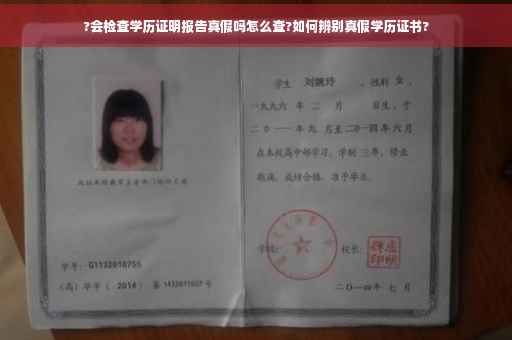 ?会检查学历证明报告真假吗怎么查?如何辨别真假学历证书?
学生 刘婉玲 ，性别 女 ，
一九九六 年 二 月 日生，于
二〇一一 年 九 月至二〇一四年 六 月
在本校高中部学习，学制 三年，修业
期满，成绩合格，准予毕业。
学校：
校长：
学号：G1132010755
（高）毕字（ 2014 ）第 1432011027 号
二〇一四年 七 月